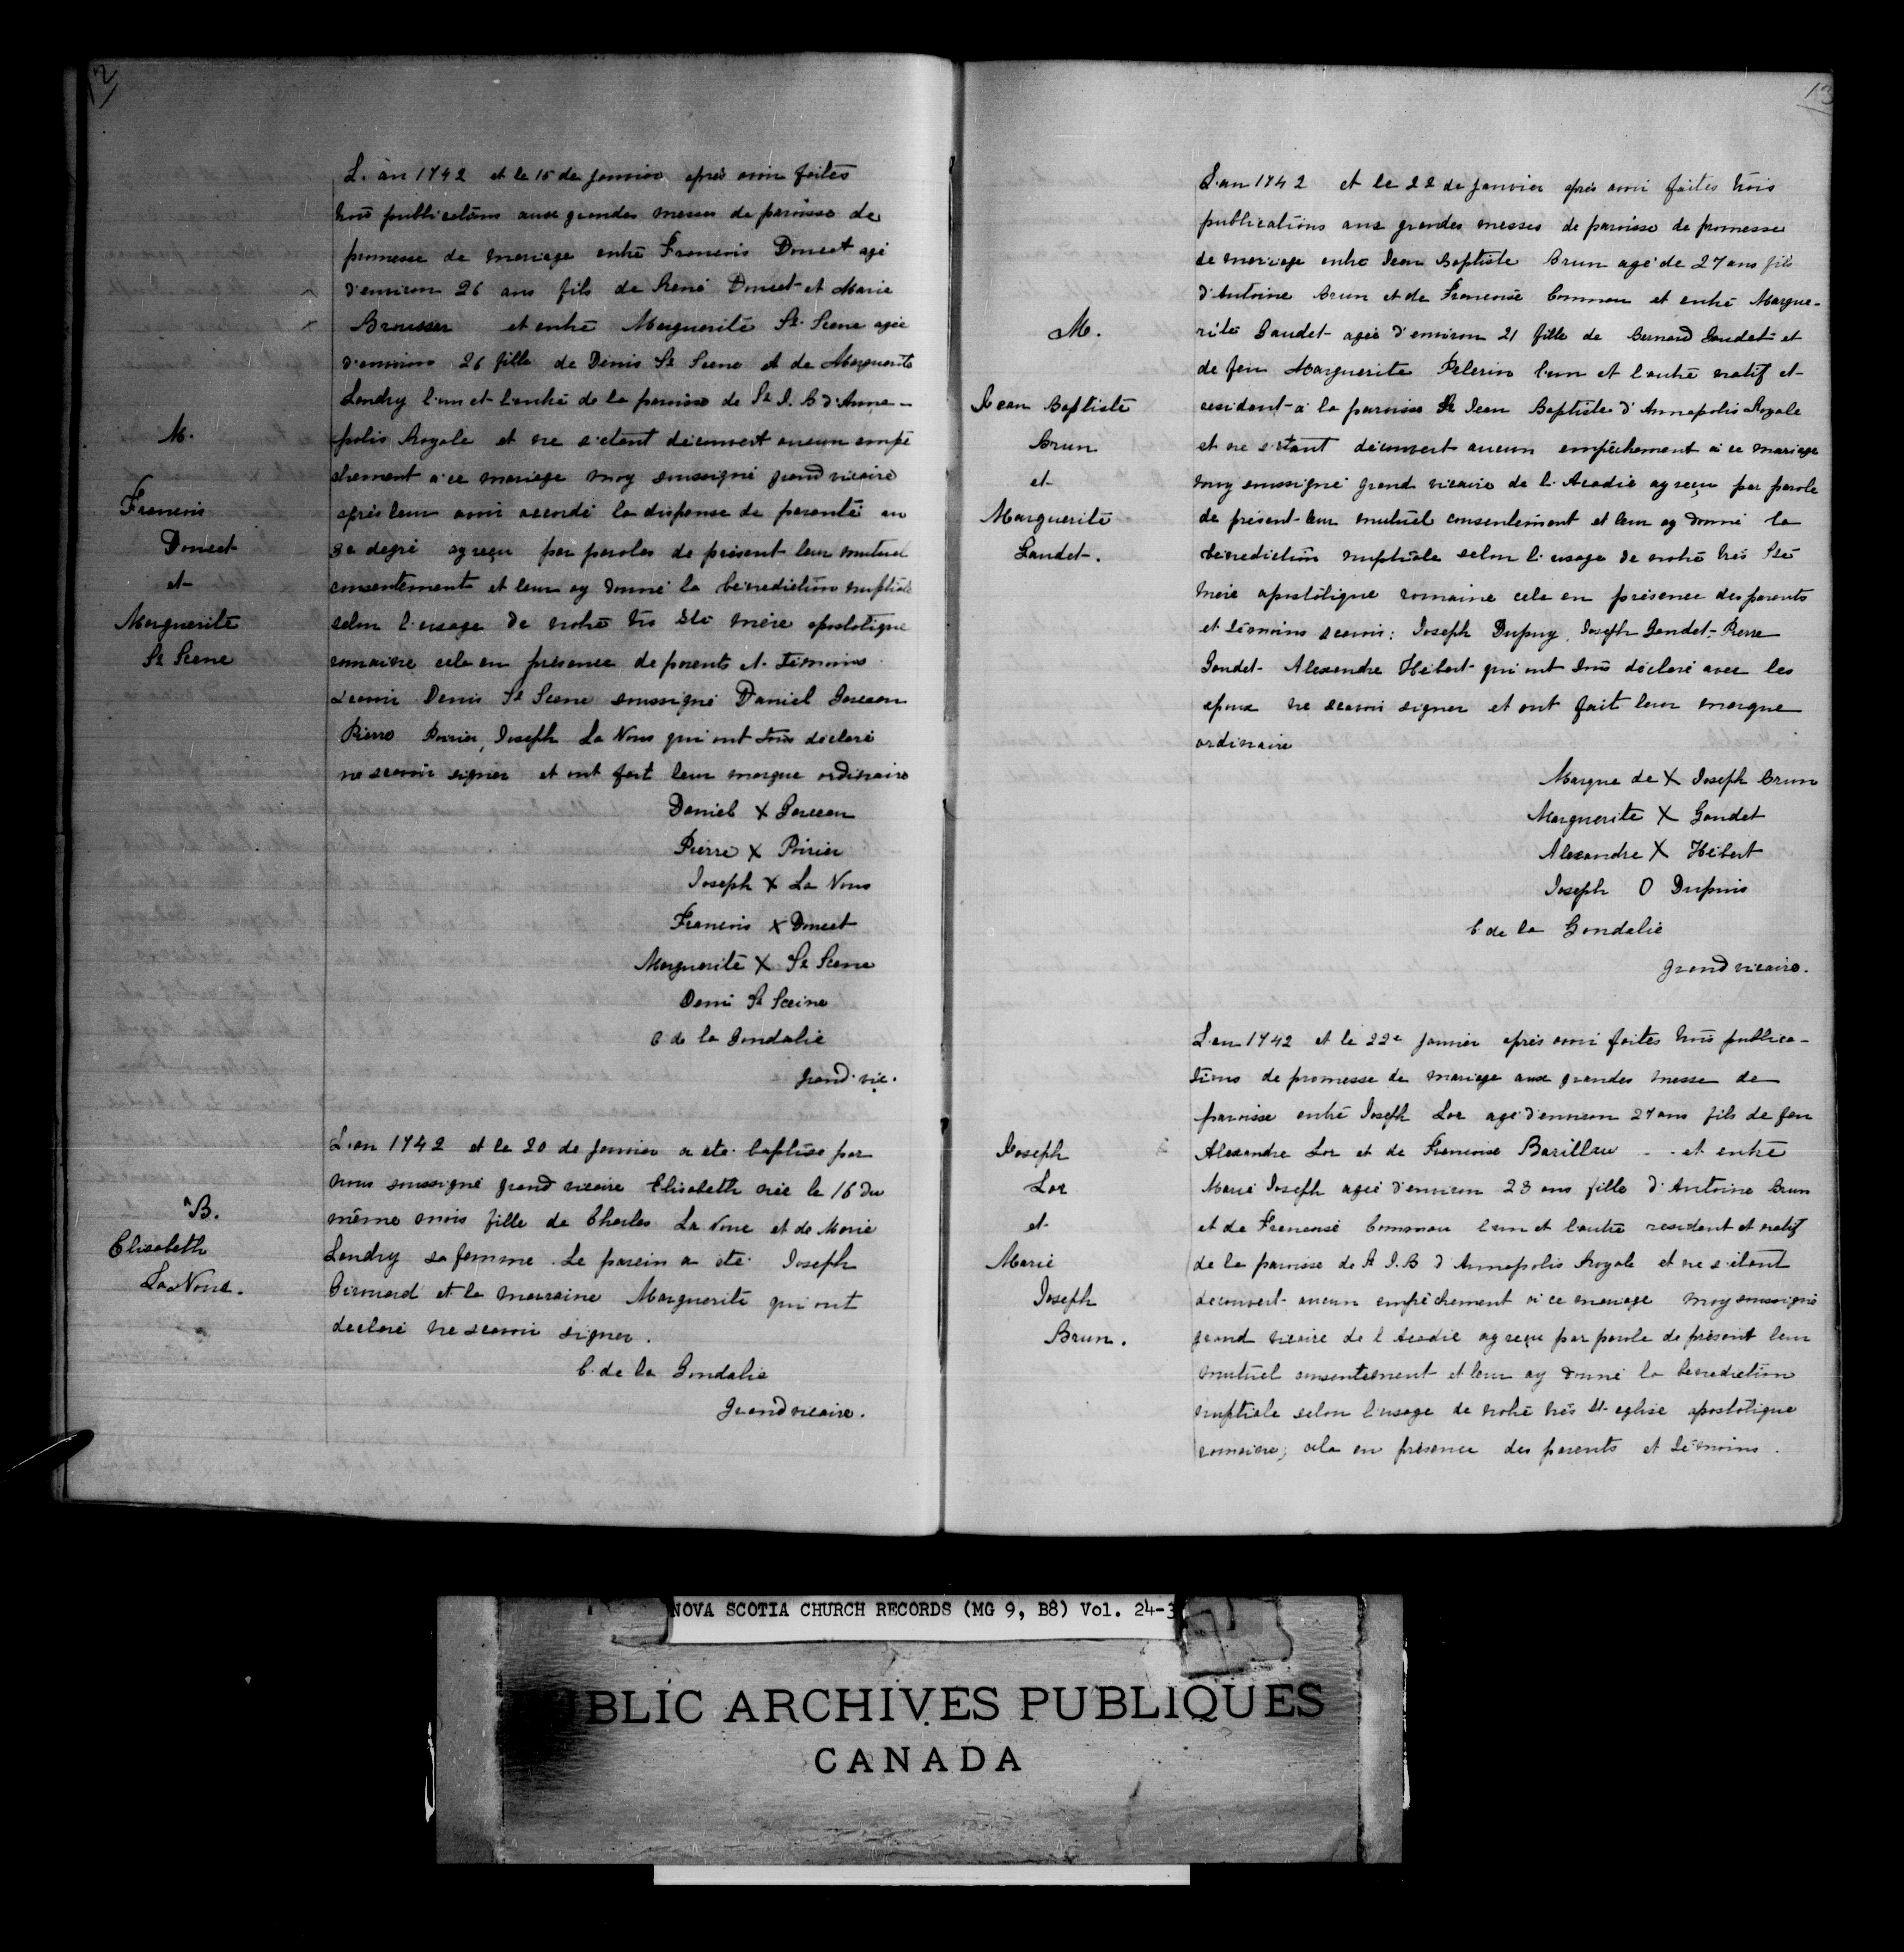 12
L'an 1742 et le 15 de Janvier après avoir faites
trois publications aux grandes messes de paroisse de
promesse de mariage entre Francois Doucet agé
d'environ 26 ans fils de René Doucet et Marie
Brousser et entre Marguerite St Scene agée
d'environ 26 fille de Dénis St Scene et de Marguerite
Landry l'un et l'autre de la paroisse de St J. B d'Anna-
polis Royale et ne s'etant découvert aucun empé
chement à ce mariage moy soussigné grand vicaire
après leur avoir accordé la dispense de parenté au
3e degré ay reçu par paroles de présent leur mutuel
consentement et leur ay donné la bénédiction nuptiale
selon l'usage de notre très Ste mère apostolique
romaine cela en présence de parents et témoins
scavoir Denis St Scene soussigné Daniel Garceau
Pierre Poirier, Joseph La Noue qui ont tous déclaré
ne scavoir signer et ont fait leur marque ordinaire
Daniel X Garceau
Pierre X Poirier
Joseph X La Noue
Francois X Doucet
Marguerite X St Scene
Deni St Sceine
C de la Goudalie
grand vic.
M.
Francois
Doucet
et
Marguerite
St Scene
L'an 1742 et le 20 de Janvier a eté baptisé par
nous soussigné grand vicaire Elisabeth née le 16 du
même mois fille de Charles La Noue et de Marie
Landry sa femme. Le parein a eté Joseph
Girouard et la marraine Marguerite qui ont
declaré ne scavoir signer.
C. de la Goudalie
Grand vicaire.
B.
Elisabeth
La Noue.
13
L'an 1742 et le 22 de Janvier après avoir faites trois
publications aux grandes messes de paroisse de promesse
de mariage entre Jean Baptiste Brun agé de 27 ans fils
d'Antoine Brun et de Francoise Commou et entre Margue-
rite Gaudet agée d'environ 21 fille de Bernard Gaudet et
de feu Marguerite Pelerin l'un et l'autre natif et
resident à la paroisse St Jean Baptiste d'Annapolis Royale
et ne s'etant découvert aucun empêchement à ce mariage
moy soussigné grand vicaire de l'Acadie ay reçu par parole
de présent leur mutuel consentement et leur ay donné la
bénédiction nuptiale selon l'usage de notre très Ste
mère apostolique romaine cela en présence des parents
et témoins scavoir: Joseph Dupuy, Joseph Gaudet-Pierre
Gaudet Alexandre Hébert qui ont tous déclaré avec les
epoux ne scavoir signer et ont fait leur marque
ordinaire
Marque de X Joseph Brun
Marguerite X Gaudet
Alexandre X Hébert
Joseph O Dupuis
C de la Goudalie
grand vicaire.
M.
Jean Baptiste
Brun
et
Marguerite
Gaudet.
L'an 1742 et le 22e Janvier après avoir faites trois publica-
tions de promesse de mariage aux grandes messe de
paroisse entre Joseph Lor agé d'environ 27 ans fils de feu
Alexandre Lor et de Francoise Barillau - . et entre
Marie Joseph agée d'environ 23 ans fille d'Antoine Brun
et de Francoise Commou l'un et l'autre resident et natif
de la paroisse de St J.B d'Annapolis Royale et ne s'étant
découvert aucun empêchement à ce mariage moy soussigné
grand vicaire de l'Acadie ay reçu par parole de présent leur
mutuel consentement et leur ay donné la bénédiction
nuptiale selon l'usage de notre très St eglise apostolique
romaine; cela en présence des parents et témoins.
Joseph
Lor
et
Marie
Joseph
Brun.
NOVA SCOTIA CHURCH RECORDS (MG 9, B8) Vol. 24-3
PUBLIC ARCHIVES PUBLIQUES
CANADA